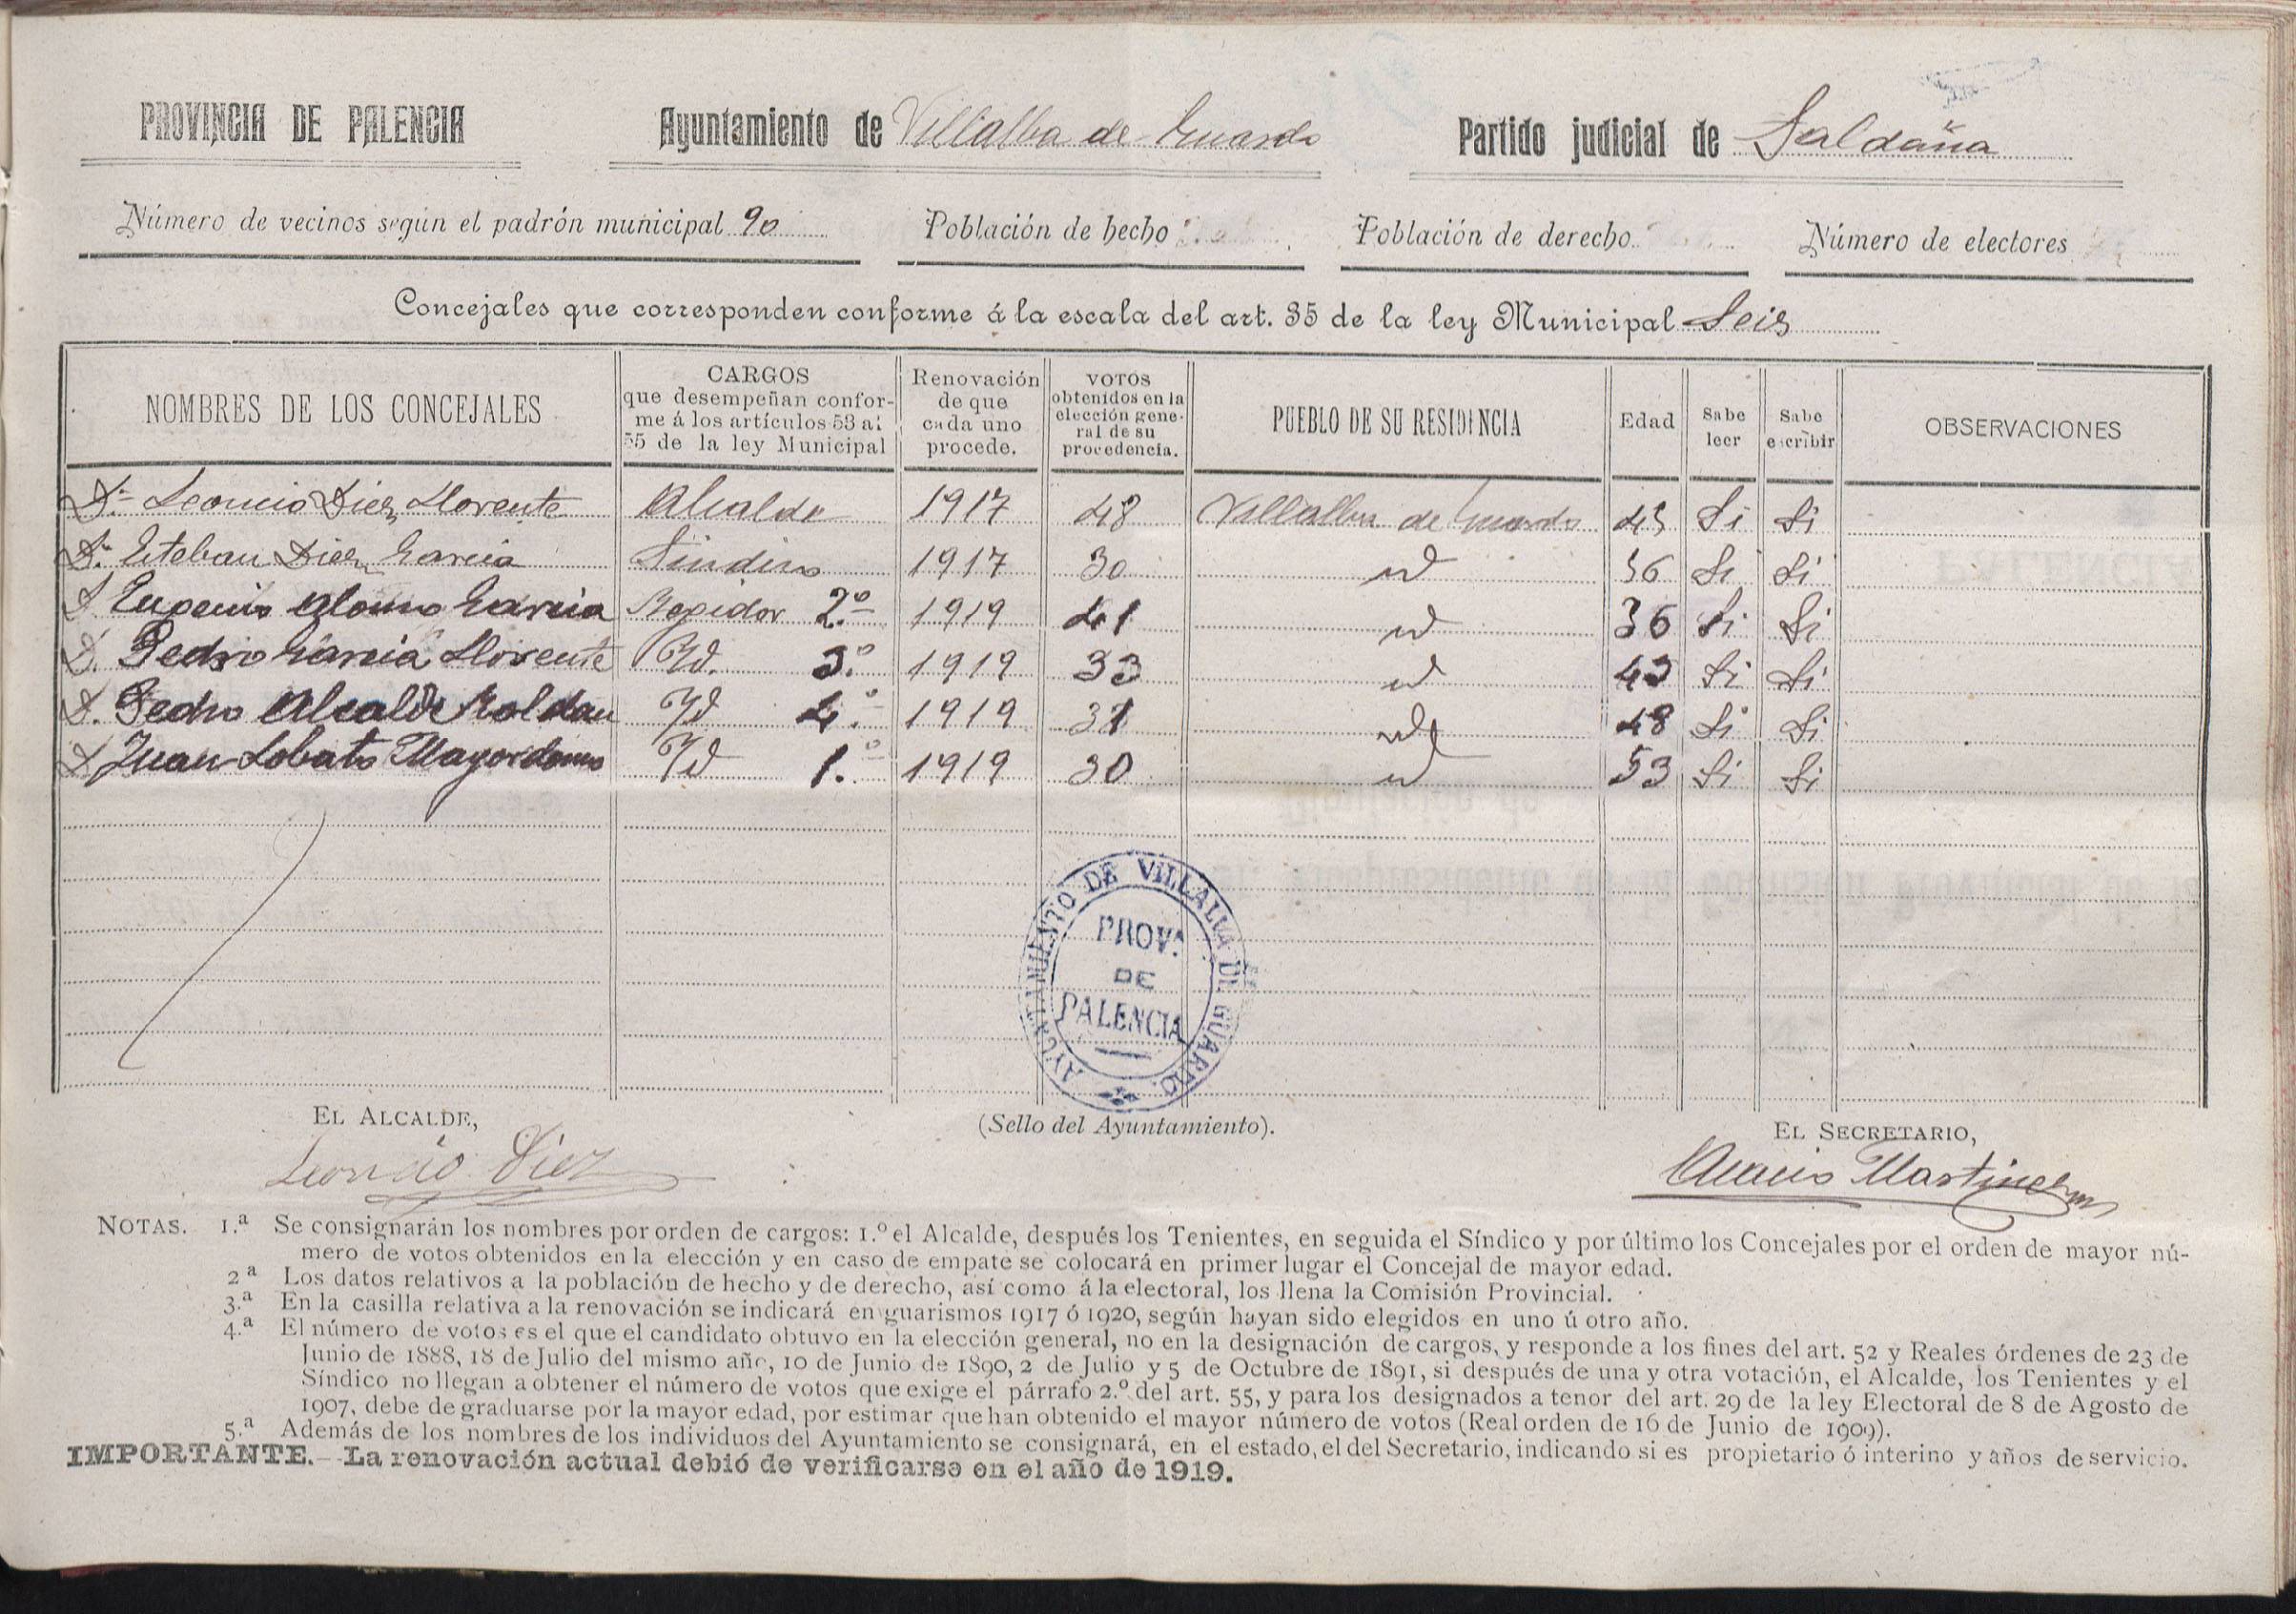 PROVINCIA DE PALENCIA Ayuntamiento de Villalba de Guardo Partido judicial de Saldaña
Número de vecinos según el padrón municipal 90 Población de hecho Población de derecho Número de electores
Concejales que corresponden conforme á la escala del art. 35 de la ley Municipal Seis
NOMBRES DE LOS CONCEJALES
CARGOS
que desempeñan confor-
me á los artículos 53 al
55 de la ley Municipal
Renovación
de que
cada uno
procede.
VOTOS
obtenidos en la
elección gene-
ral de su
procedencia.
PUEBLO DE SU RESIDENCIA
Edad
Sabe
leer
Sabe
escribir
OBSERVACIONES
D.n Leoncio Diez Llorente Alcalde 1917 48 Villalba de Guardo 43 Si Si
D.n Esteban Diez Garcia Sindico 1917 30 id 36 Si Si
D. Eugenio Alonso Garcia Regidor 2.º 1919 41 id 36 Si Si
D. Pedro Garcia Llorente Id. 3.º 1919 33 id 43 Si Si
D. Pedro Alcalde Roldan Id 4.º 1919 31 id 48 Si Si
D Juan Lobato Mayordomo Id 1.º 1919 30 id 53 Si Si
AYUNTAMIENTO DE VILLALBA DE GUARDO
PROV.ª
DE
PALENCIA
EL ALCALDE, (Sello del Ayuntamiento). EL SECRETARIO,
Leoncio Diez Martinez
NOTAS. 1.ª Se consignarán los nombres por orden de cargos: 1.º el Alcalde, después los Tenientes, en seguida el Síndico y por último los Concejales por el orden de mayor nú-
mero de votos obtenidos en la elección y en caso de empate se colocará en primer lugar el Concejal de mayor edad.
2ª Los datos relativos a la población de hecho y de derecho, así como á la electoral, los llena la Comisión Provincial.
3.ª En la casilla relativa a la renovación se indicará en guarismos 1917 ó 1920, según hayan sido elegidos en uno ú otro año.
4.ª El número de votos es el que el candidato obtuvo en la elección general, no en la designación de cargos, y responde a los fines del art. 52 y Reales órdenes de 23 de
Junio de 1888, 18 de Julio del mismo año, 10 de Junio de 1890, 2 de Julio y 5 de Octubre de 1891, si después de una y otra votación, el Alcalde, los Tenientes y el
Síndico no llegan a obtener el número de votos que exige el párrafo 2.º del art. 55, y para los designados a tenor del art. 29 de la ley Electoral de 8 de Agosto de
1907, debe de graduarse por la mayor edad, por estimar que han obtenido el mayor número de votos (Real orden de 16 de Junio de 1909).
5.ª Además de los nombres de los individuos del Ayuntamiento se consignará, en el estado, el del Secretario, indicando si es propietario ó interino y años de servicio.
IMPORTANTE.—La renovación actual debió de verificarse en el año de 1919.